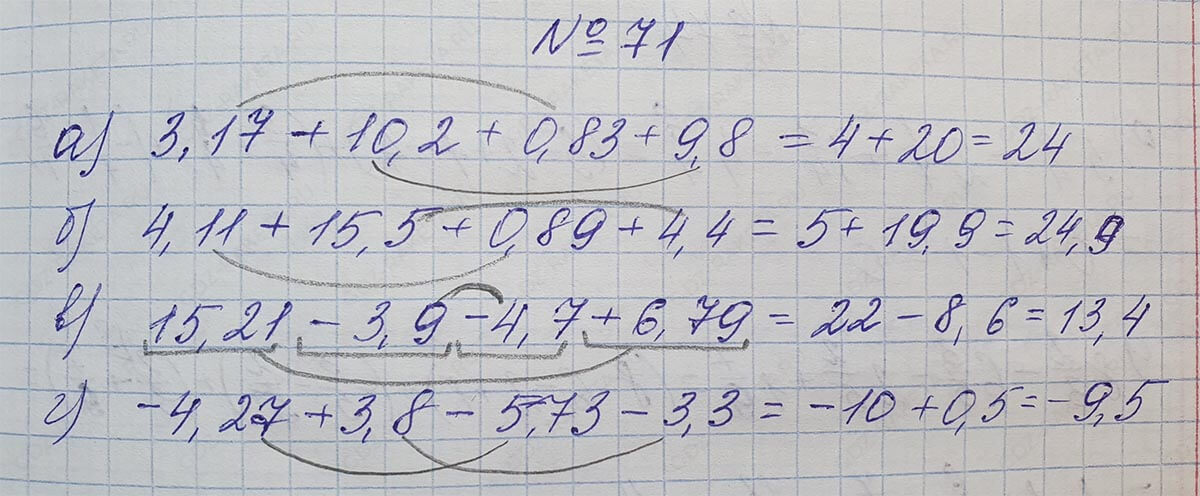 № 71
а) 3,17 + 10,2 + 0,83 + 9,8 = 4 + 20 = 24
б) 4,11 + 15,5 + 0,89 + 4,4 = 5 + 19,9 = 24,9
в) 15,21 - 3,9 - 4,7 + 6,79 = 22 - 8,6 = 13,4
г) -4,27 + 3,8 - 5,73 - 3,3 = -10 + 0,5 = -9,5